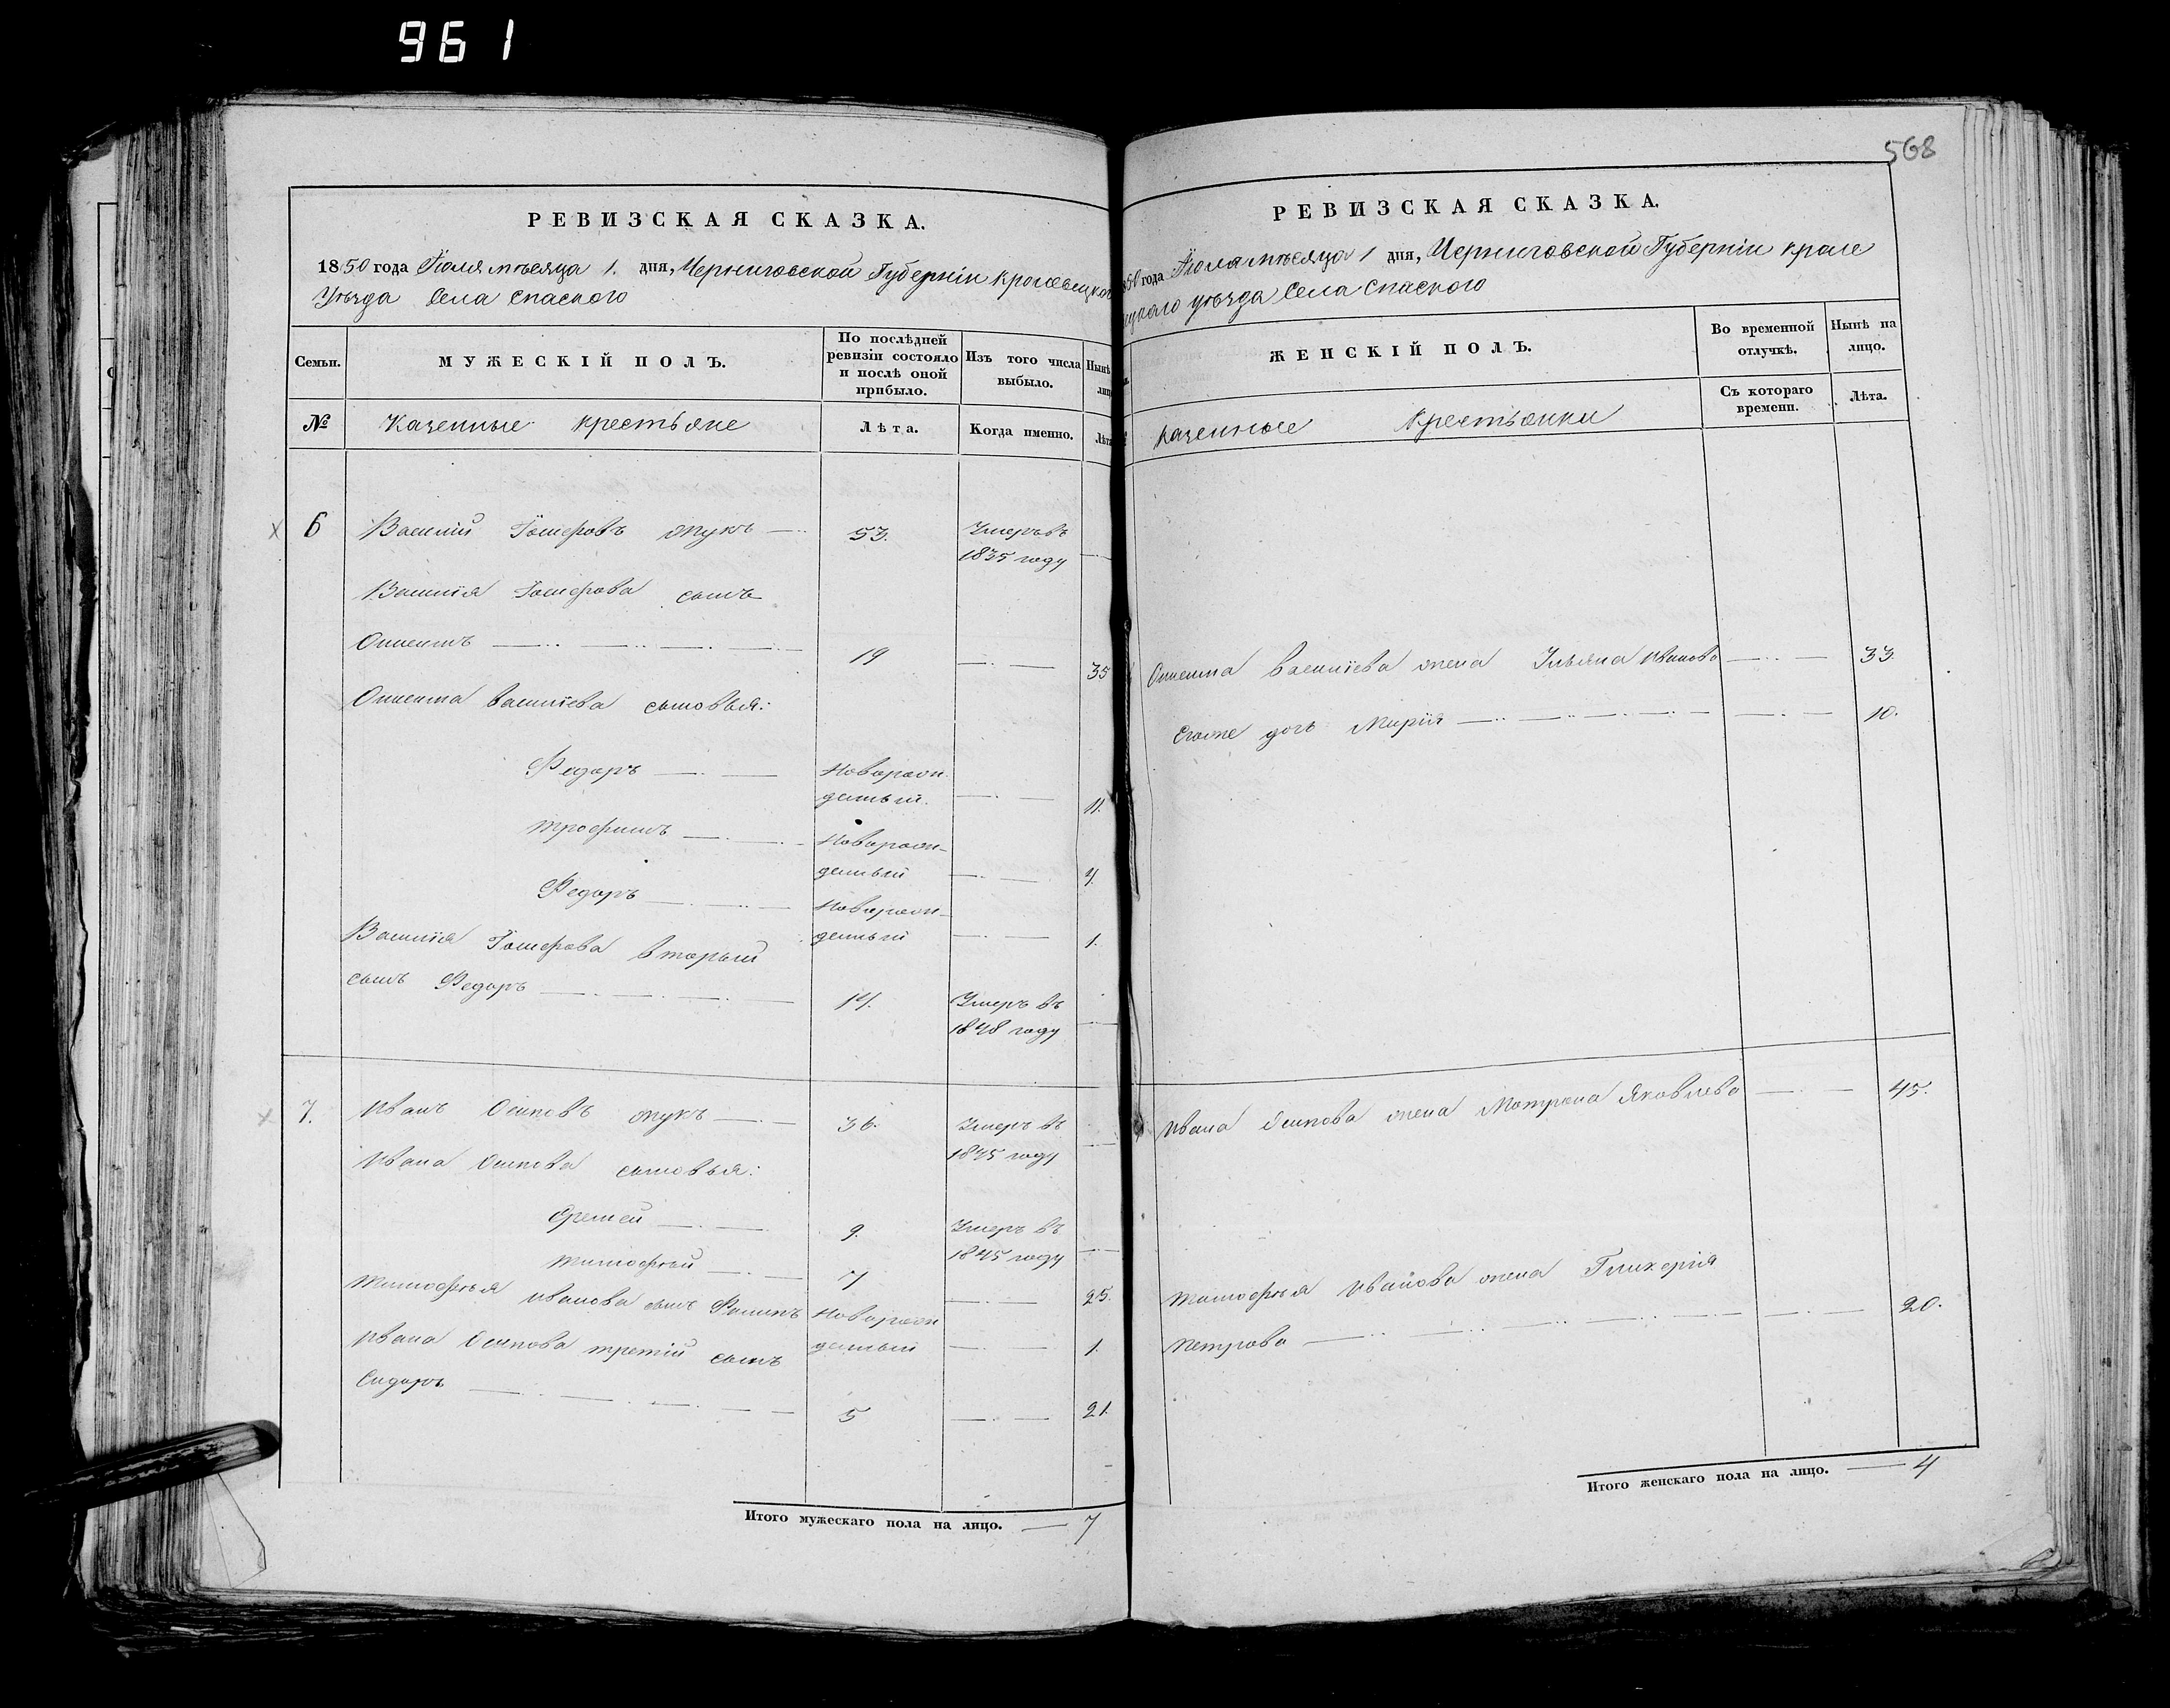 961
568
РЕВИЗСКАЯ СКАЗКА.
1850 года Іюля мѣсяца 1. дня, Черниговской Губерніи Кролевецкого
Уѣзда Села Спаского
Семьи.
МУЖЕСКІЙ ПОЛЪ.
По послѣдней ревизіи состояло и послѣ оной прибыло.
Изъ того числа выбыло.
Нынѣ
№
Казенные крестьяне
Лѣта.
Когда именно.
Лѣта
6 Василий Іосифовъ Жукъ 53. Умеръ въ
1835 году
Василія Іосифова сынъ
19 35
Василіева сыновья:
Федоръ Новорож
денный. 11.
Трофимъ Новорож-
денный 4.
Федоръ Новорож-
денный 1.
Василія Іосифова вторый
сынъ Федоръ 14. Умеръ въ
1848 году
7. Иванъ Осиповъ Жукъ 36. Умеръ въ
1845 году
Ивана Осипова сыновья:
9. Умеръ въ
1845 году
Тимофѣй 7 25.
Тимофѣя Иванова сынъ Филипъ Новорож
денный 1.
Ивана Осипова третій сынъ
Сидоръ 5 21.
Итого мужескаго пола на лицо. 7
РЕВИЗСКАЯ СКАЗКА.
1850 года Іюля мѣсяца 1 дня, Черниговской Губерніи Кроле
вецкаго уѣзда Села Спаского
ЖЕНСКІЙ ПОЛЪ.
Во временной отлучкѣ.
Нынѣ на лицо.
Съ котораго времени.
Лѣта.
Казенные Крестьянки
Василіева жена Ульяна Иванова 33.
Егоже дочь Марія 10.
Ивана Осипова жена Матрона Яковлева 45.
Тимофѣя Иванова жена Гликерія
Петрова 20.
Итого женскаго пола на лицо. 4